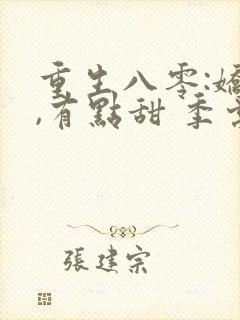 重生八零:嬌
,有點甜 季
張建宗